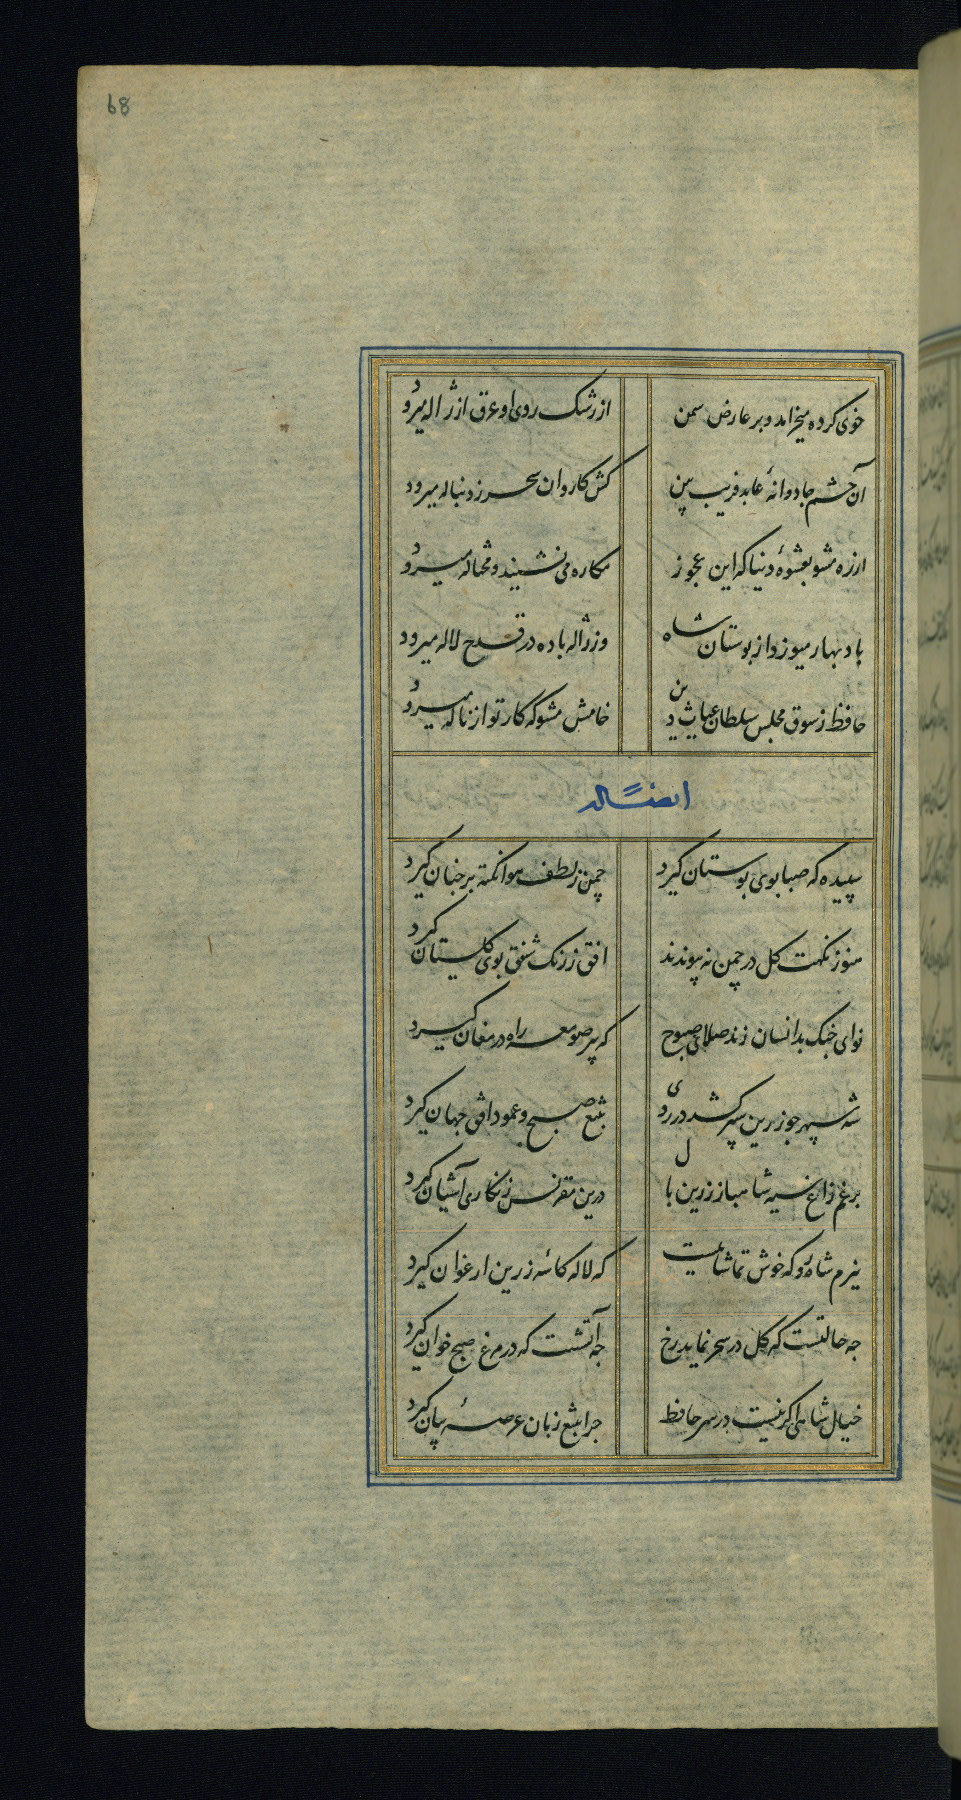 68
خوی کرده میخرامد و بر عارض سمن
از رشک روی او عرق از ژاله میرود
آن چشم جادوانهٔ عابدفریب بین
کش کاروان سحر ز دنباله میرود
از ره مشو بعشوهٔ دنیا که این عجوز
مکاره می نشیند و محتاله میرود
باد بهار میوزد از بوستان شاه
وز ژاله باده در قدح لاله میرود
حافظ ز سوق مجلس سلطان غیاث دین
خامش مشو که کار تو از ناله میرود
ایضاً له
سپیده که صبا بوی بوستان گیرد
چمن ز لطف هوا نکته بر جنان گیرد
نکهت کل در چمن
افق ز رنک شفق بوی کلستان گیرد
نوای چنک بدانسان زند صلای صبوح
که پیر صومعه راه در مغان گیرد
شه سپهر جو زرین سپر کشد در روی
بتیغ صبح و عمود افق جهان گیرد
برغم زاغ سیه شاهباز زرین بال
درین مقرنس زنکاری آشیان گیرد
ببزم شاه رو که خوش تماشاییست
که لاله کاسه زرین ارغوان گیرد
جه حالتست که کل در سحر نماید رخ
جه آتشست که در مرغ صبح خوان گیرد
خیال شاهی اکر نیست در سر حافظ
جرا بتیغ زبان عرصهٔ بیان گیرد